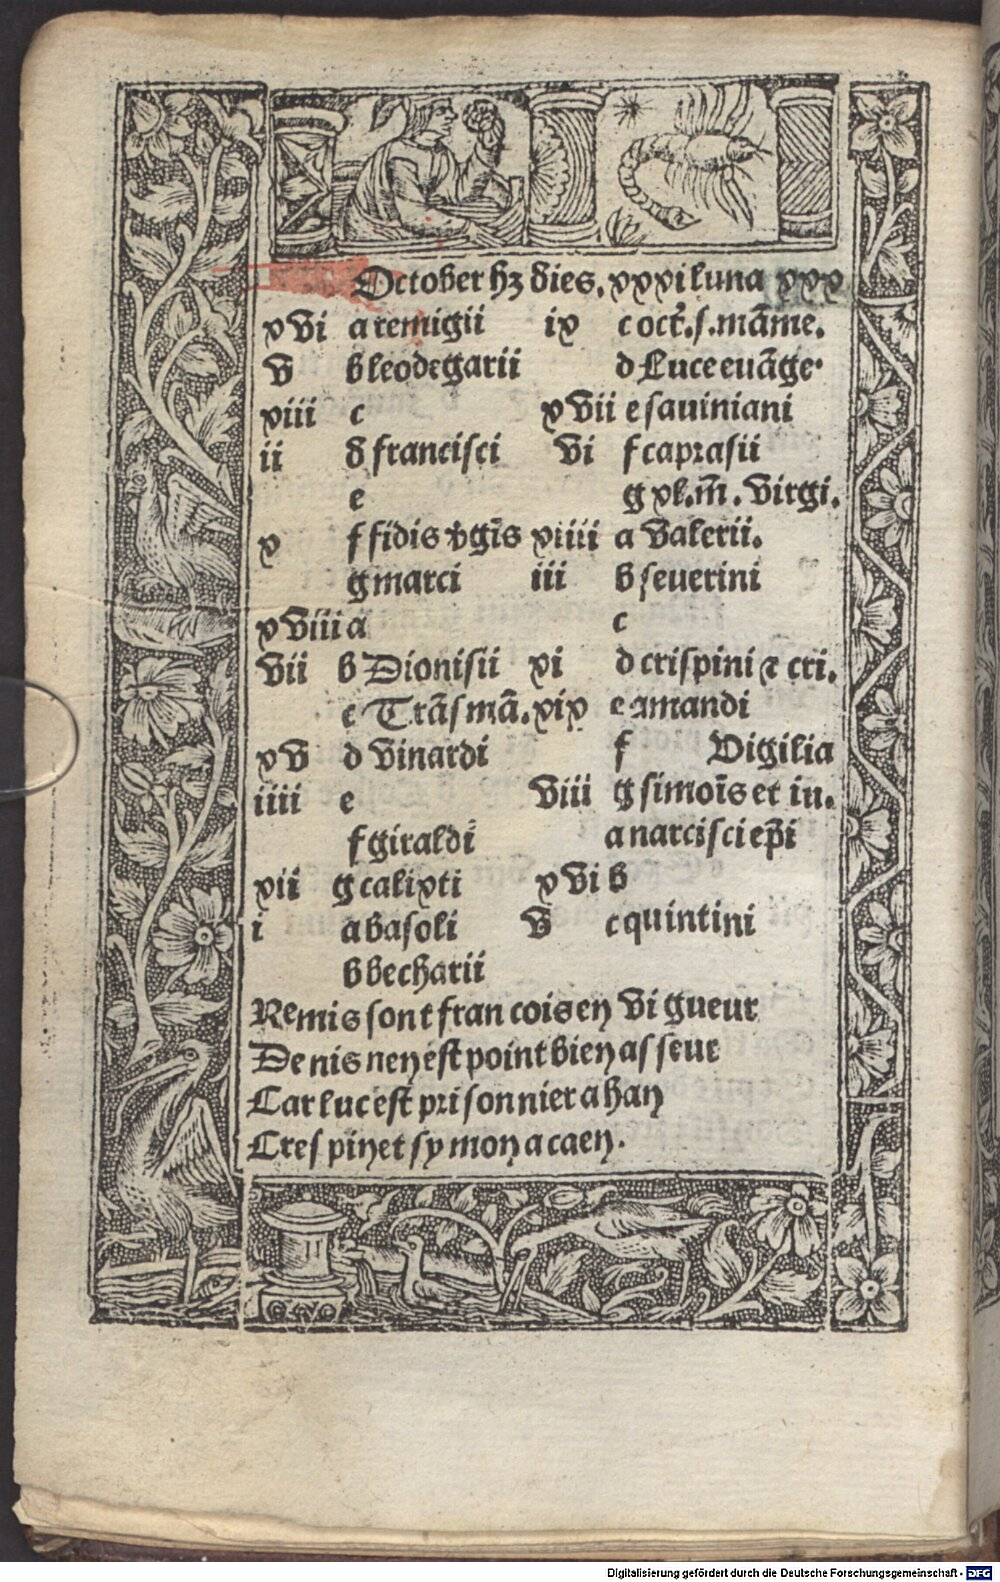 October hꝫ dies. xxxi luna xxx
xvi a remigii
v b leodegarii
xiii c
ii d francisci
e
x f fidis v̾gīs
g marci
xviii a
vii b Dionisii
c Trās mā.
xv d vinardi
iiii e
f giraldi
xii g calixti
i a basoli
b becharii
ix c oct̄. s. māme.
d Luce euāge.
xvii e sauiniani
vi f caprasii
g xl. m̄. virgi.
xiiii a valerii.
iii b seuerini
c
xi d crispini ⁊ cri.
xix e amandi
f Vigilia
viii g simoīs et iu.
a narcisci ep̄i
xvi b
v c quintini
Remis sont francois en vigueur
Denis nen est point bien asseur
Car luc est prisonnier a han
Crespin et symon a caen.
Digitalisierung gefördert durch die Deutsche Forschungsgemeinschaft - DFG